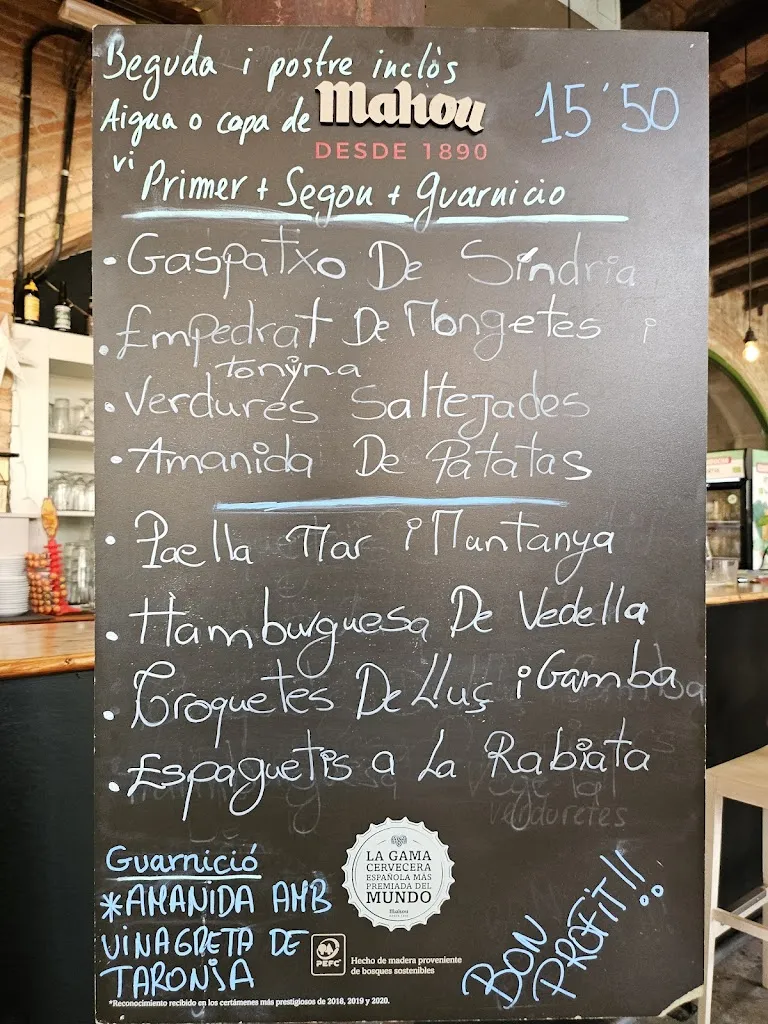 Beguda i postre inclòs
Aigua o copa de
vi
mahou
DESDE 1890
15'50
Primer + Segon + guarnicio
• Gaspatxo De Sindria
• Empedrat De Mongetes i
tonyna
• Verdures Saltejades
• Amanida De Patatas
• Paella Mar i Muntanya
• Hamburguesa De Vedella
• Croquetes De Lluç i Gamba
• Espaguetis a La Rabiata
verduretes
Guarnició
*AMANIDA AMB
VINAGRETA DE
TARONJA
LA GAMA
CERVECERA
ESPAÑOLA MÁS
PREMIADA DEL
MUNDO
Mahou
PEFC
Hecho de madera proveniente
de bosques sostenibles
BON
PROFIT!!
*Reconocimiento recibido en los certámenes más prestigiosos de 2018, 2019 y 2020.